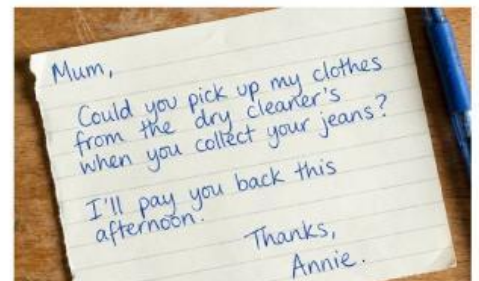 Mum,
Could you pick up my clothes
from the dry cleaner's
when you collect your jeans?
I'll pay you back this
afternoon.
Thanks,
Annie.